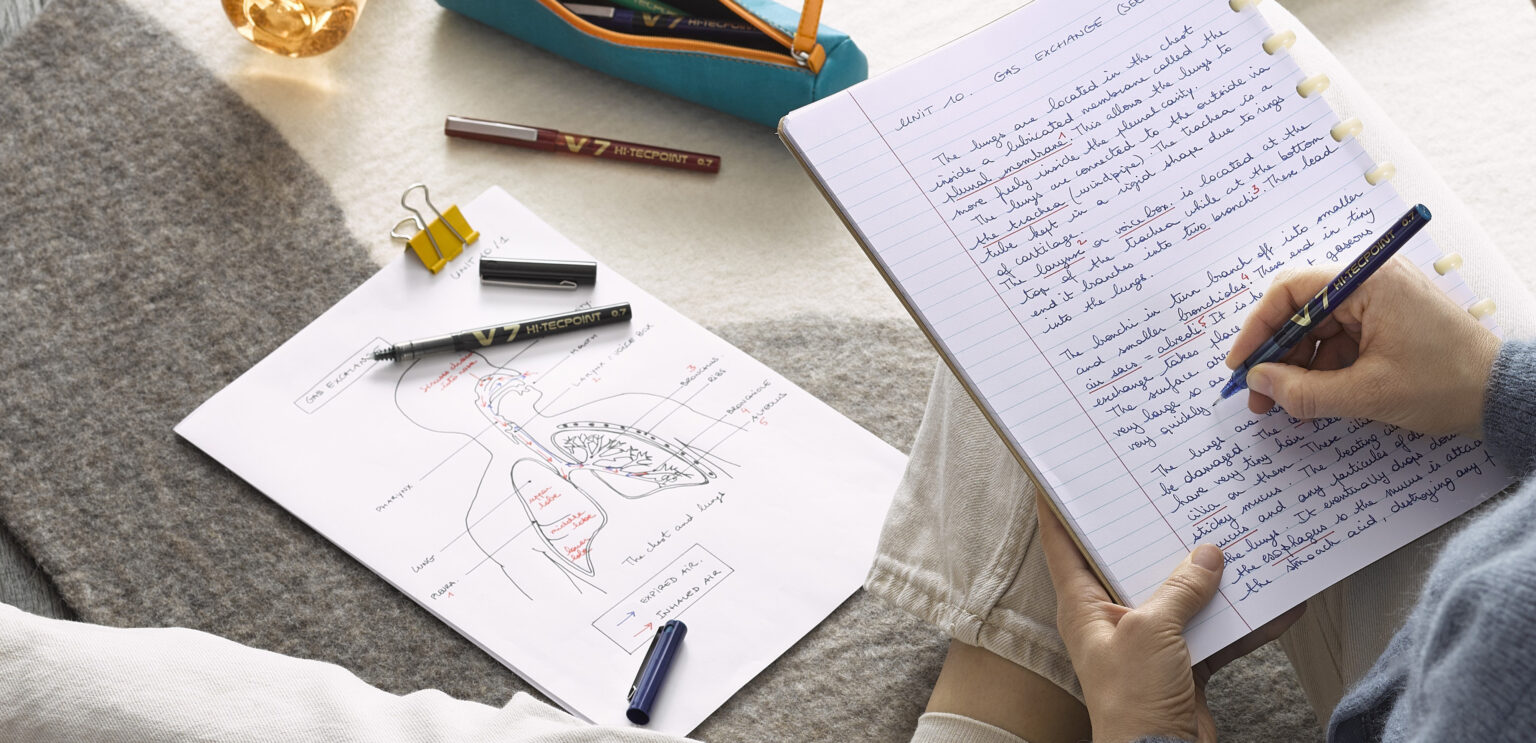 V7 HI-TECPOINT
V7 HI-TECPOINT 0.7
UNIT 10/1
V7 HI-TECPOINT 0.7
GAS EXCHANGE
MOUTH
LARYNX / VOICE BOX
2
3
BRONCHUS
RIBS
BRONCHIOLE
4
ALVEOLUS
5
PHARYNX
LUNG
PLEURA.
1
upper
lobe
middle
lobe
lower
lobe
The chest and lungs
EXPIRED AIR.
INHALED AIR
UNIT 10. GAS EXCHANGE
The lungs are located in the chest
inside a lubricated membrane called the
pleural membrane.1 This allows the lungs to
more freely inside the pleural cavity.
The lungs are connected to the outside via
the trachea (windpipe). The trachea is a
tube kept in a rigid shape due to rings
of cartilage.
The larynx2 or voice box. is located at the
top of the trachea while at the bottom
end it branches into two bronchi3. These lead
into the lungs.
The bronchi in turn branch off into smaller
and smaller bronchioles4. These end in tiny
air sacs = alveoli5. It is here gaseous
exchange takes
The surface area
very large so
very quickly
The lungs are
be damaged. The
have very tiny hair
cilia on them. These cilia
sticky mucus. The beating
mucus and any particles of
the lungs. It eventually drops down
the esophagus so the mucus is
the stomach acid, destroying any
V7 HI-TECPOINT 0.7